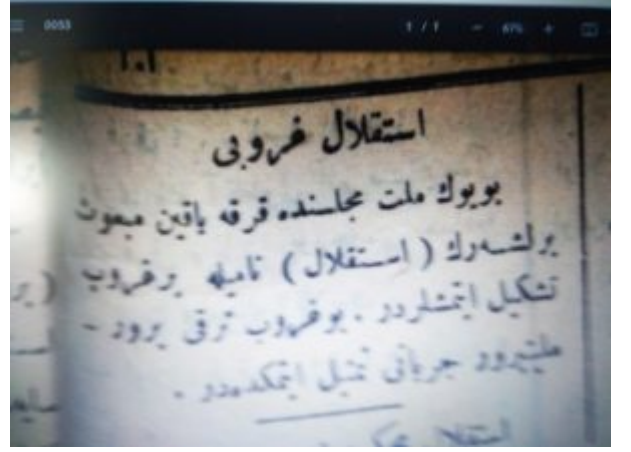 0053 1 / 1 − 67% +
استقلال غروبی
بویوك ملت مجلسنده قرقه یاقین مبعوث
برلشه‌رك ( استقلال ) نامیله برغروب
تشكیل ایتمشلردر . بوغروب ترقی پرور -
ملتپرور جریانی تمثیل ایتمكده‌در .
استقلال